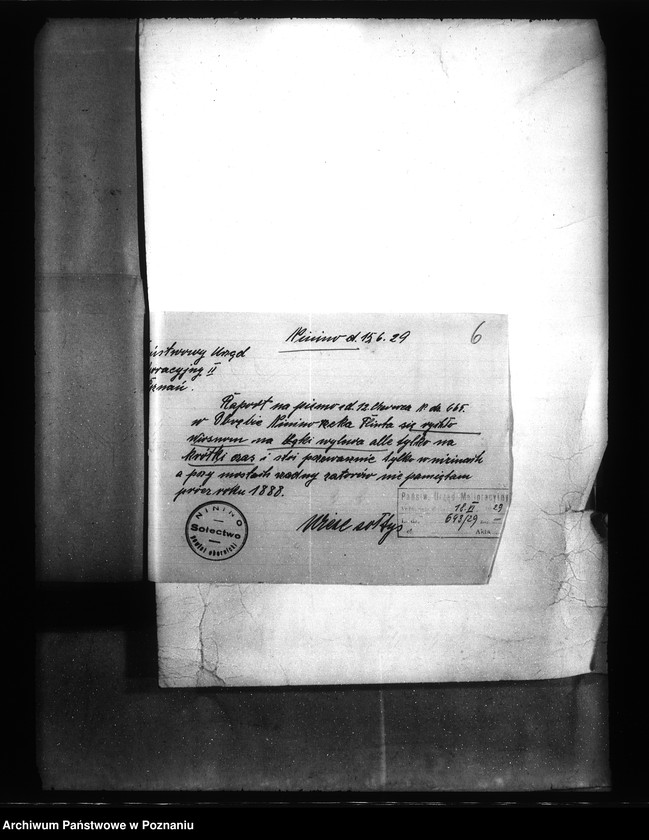 Ninino d. 15.6.29
6
ństwowy Urząd
oracyjny II
znań.
Raport na pismo d. 12 Czerwca N. dz. 665.
w Obrębie Ninino rzeka Flinta się rychło
wiosnom na Łąki wylewa alle tylko na
krótki czas i stoi przeważnie tylko w nizinach
a przy mostach rzadny zatorów nie pamiętam
prócz roku 1888.
NININO
Sołectwo
powiat obornicki
Wiese sołtys
Państw. Urząd Meljoracyjny
18. VI 29
643/29
Archiwum Państwowe w Poznaniu